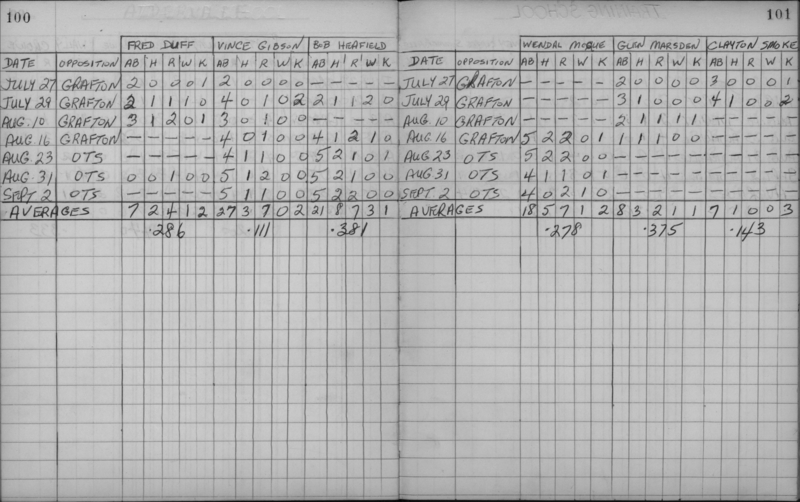 100
FRED DUFF VINCE GIBSON BOB HEAFIELD
DATE OPPOSITION AB H R W K AB H R W K AB H R W K
JULY 27 GRAFTON 2 0 0 0 1 2 0 0 0 0 — — — — —
JULY 29 GRAFTON 2 1 1 1 0 4 0 1 0 2 2 1 1 2 0
AUG. 10 GRAFTON 3 1 2 0 1 3 0 1 0 0 — — — — —
AUG. 16 GRAFTON — — — — — 4 0 1 0 0 4 1 2 1 0
AUG. 23 OTS — — — — — 4 1 1 0 0 5 2 1 0 1
AUG. 31 OTS 0 0 1 0 0 5 1 2 0 0 5 2 1 0 0
SEPT. 2 OTS — — — — — 5 1 1 0 0 5 2 2 0 0
AVERAGES 7 2 4 1 2 27 3 7 0 2 21 8 7 3 1
.286 .111 .381
101
WENDAL GLEN MARSDEN CLAYTON SMOKE
DATE OPPOSITION AB H R W K AB H R W K AB H R W K
JULY 27 GRAFTON — — — — — 2 0 0 0 0 3 0 0 0 1
JULY 29 GRAFTON — — — — — 3 1 0 0 0 4 1 0 0 2
AUG. 10 GRAFTON — — — — — 2 1 1 1 1 — — — — —
AUG. 16 GRAFTON 5 2 2 0 1 1 1 1 0 0 — — — — —
AUG 23 OTS 5 2 2 0 0 — — — — — — — — — —
AUG 31 OTS 4 1 1 0 1 — — — — — — — — — —
SEPT. 2 OTS 4 0 2 1 0 — — — — — — — — — —
AVERAGES 18 5 7 1 2 8 3 2 1 1 7 1 0 0 3
.278 .375 .143